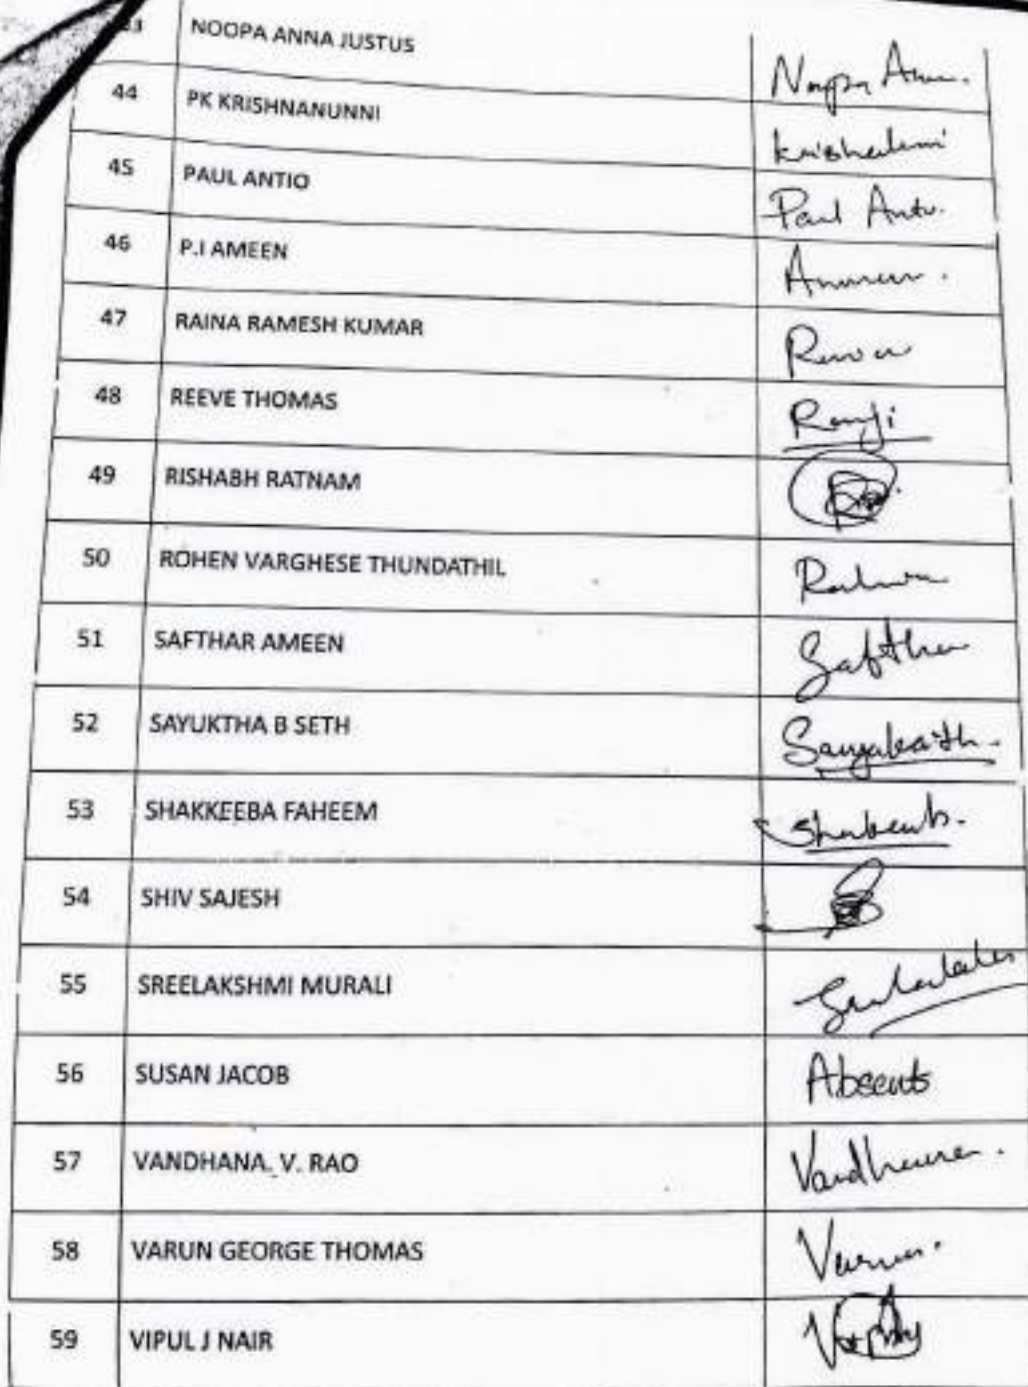 NOOPA ANNA JUSTUS
44 PK KRISHNANUNNI
45 PAUL ANTIO Paul Anto.
46 P.I AMEEN
47 RAINA RAMESH KUMAR
48 REEVE THOMAS
49 RISHABH RATNAM
50 ROHEN VARGHESE THUNDATHIL
51 SAFTHAR AMEEN Safthar
52 SAYUKTHA B SETH
53 SHAKKEEBA FAHEEM
54 SHIV SAJESH
55 SREELAKSHMI MURALI
56 SUSAN JACOB Absent
57 VANDHANA. V. RAO Vandhana.
58 VARUN GEORGE THOMAS Varun.
59 VIPUL J NAIR